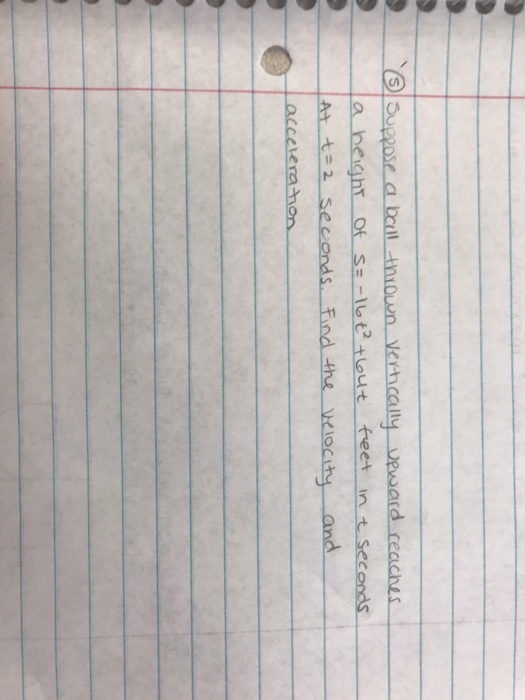 (5) Suppose a ball thrown vertically upward reaches
a height of s = -16t² + 64t feet in t seconds
At t = 2 seconds. Find the velocity and
acceleration